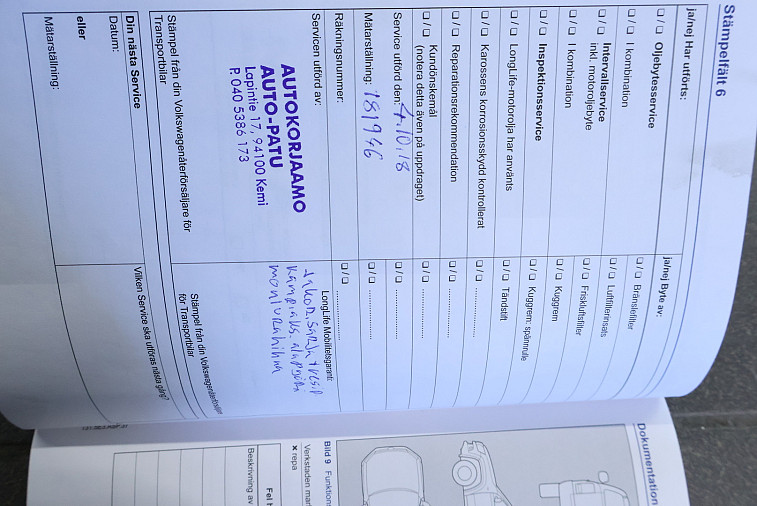 Stämpelfält 6
ja/nej Har utförts:
❏ / ❏ Oljebytesservice
❏ / ❏ I kombination
❏ / ❏ Intervallservice
inkl. motoroljebyte
❏ / ❏ I kombination
❏ / ❏ Inspektionsservice
❏ / ❏ LongLife-motorolja har använts
❏ / ❏ Karossens korrosionsskydd kontrollerat
❏ / ❏ Reparationsrekommendation
❏ / ❏ Kundönskemål
(notera detta även på uppdraget)
Service utförd den: 4.10.18
Mätarställning: 181946
Räkningsnummer:
Servicen utförd av:
AUTOKORJAAMO
AUTO-PATU
Lapintie 17, 94100 Kemi
P. 040 5386 173
Stämpel från din Volkswagenåterförsäljare för
Transportbilar
Din nästa Service
Datum:
eller
Mätarställning:
ja/nej Byte av:
❏ / ❏ Bränslefilter
❏ / ❏ Luftfilterinsats
❏ / ❏ Friskluftsfilter
❏ / ❏ Kuggrem
❏ / ❏ Kuggrem: spännrulle
❏ / ❏ Tändstift
❏ / ❏ ................
❏ / ❏ ................
❏ / ❏ ................
❏ / ❏ ................
❏ / ❏ ................
❏ / ❏ ................
LongLife Mobilitetsgaranti:
Stämpel från din Volkswagenåterförsäljare
för Transportbilar
Vilken Service ska utföras nästa gång?
Dokumentation
Bild 9 Funktions
Verkstaden mar
× repa
Fel
Beskrivning av